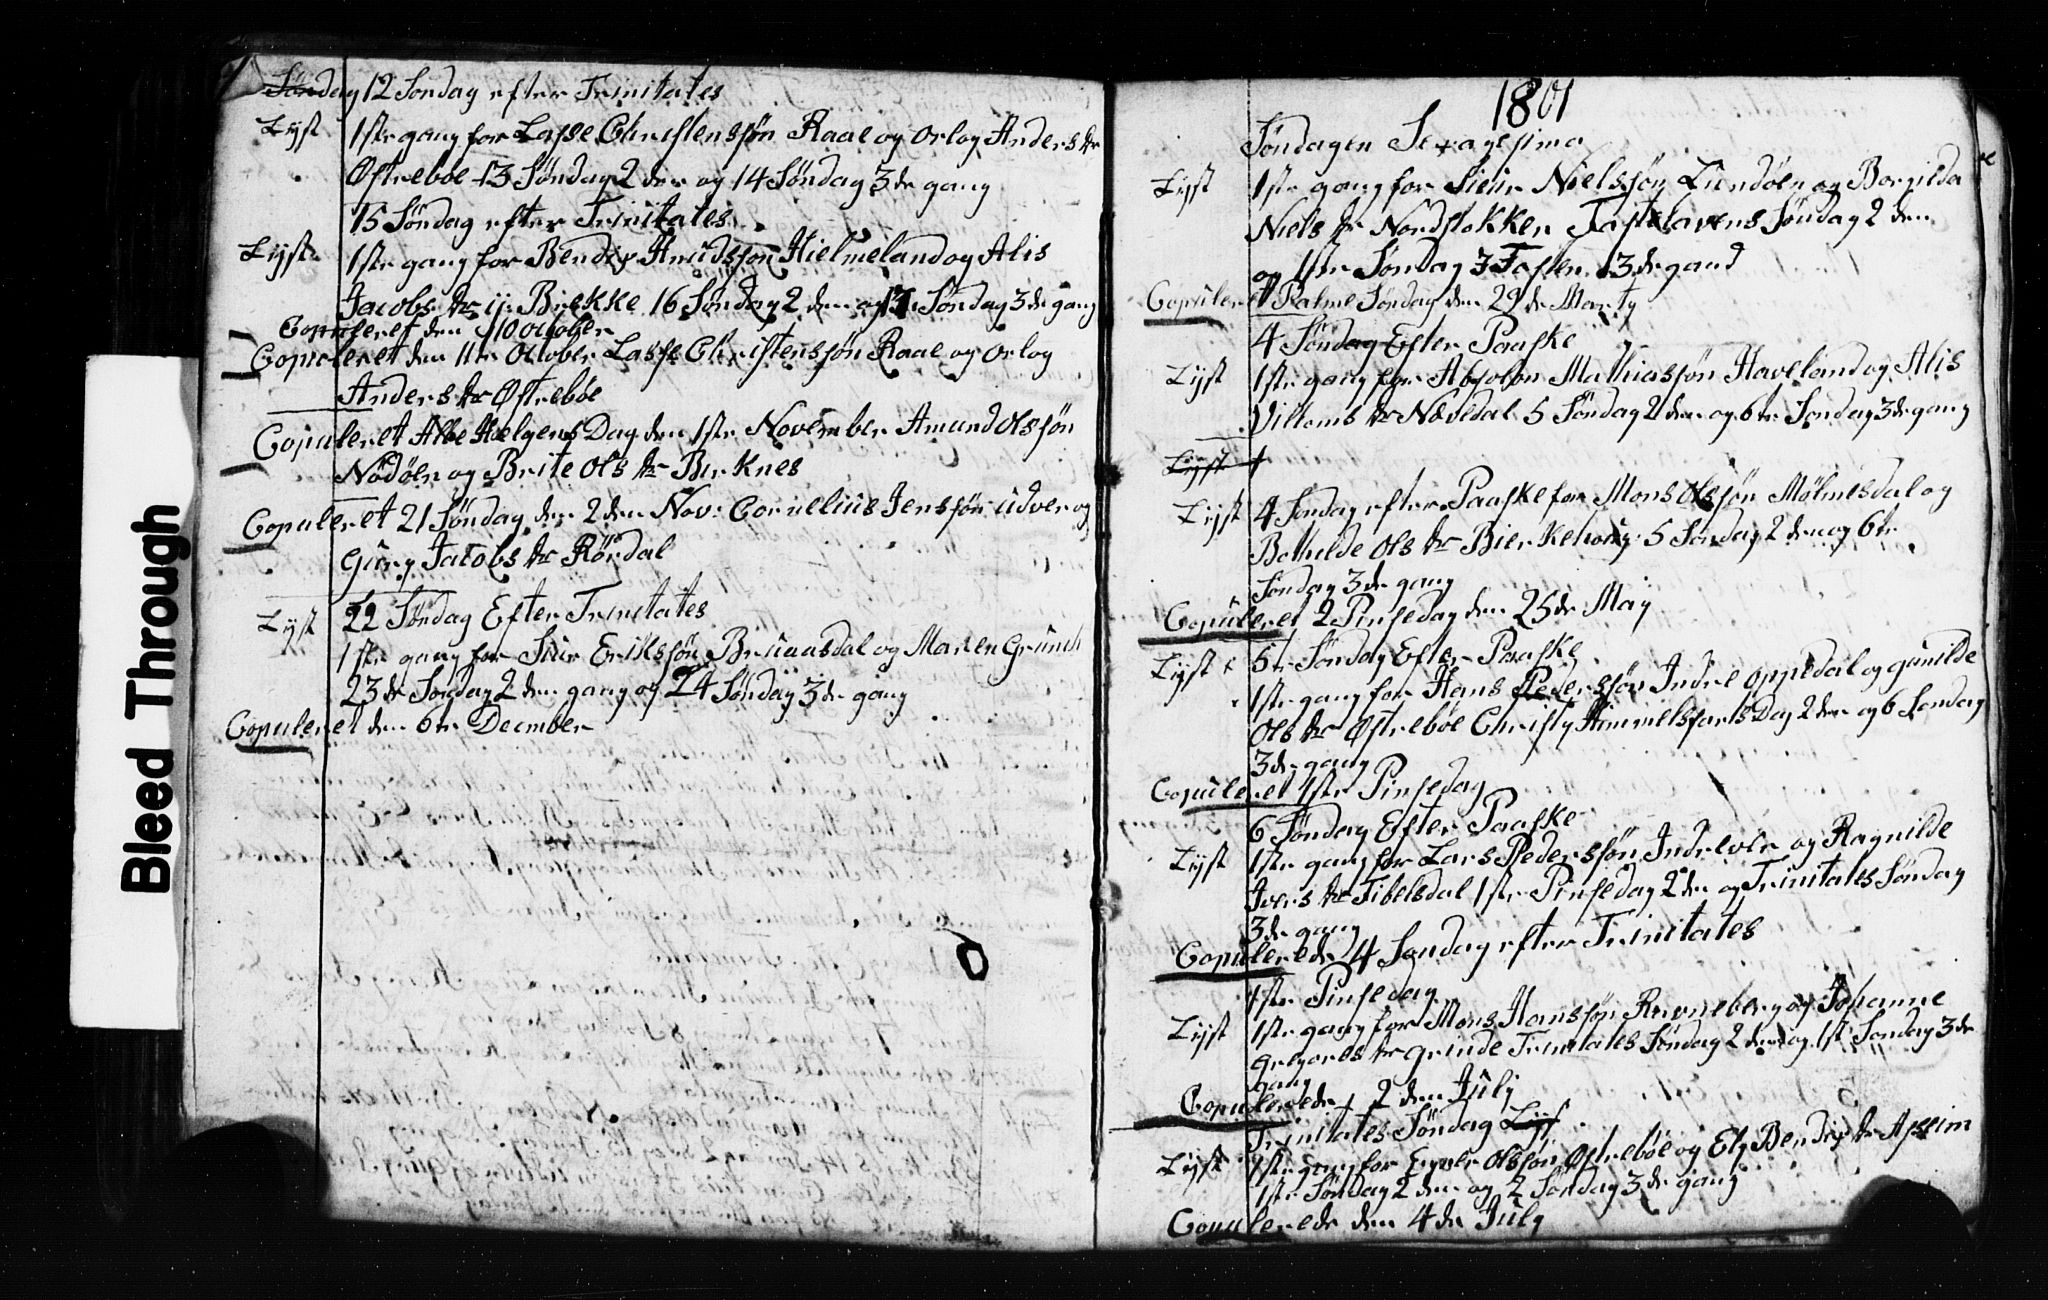 Søndag 12 Søndag efter Trinitates
Lyst 1ste gang for Lasse Christenssøn Raae og Orlog Anders dtr
Østrebøe 13 Søndag 2den og 14 Søndag 3de gang
15 Søndag efter Trinitates
Lyst 1ste gang for Bendix Knudssøn Hielmeland og Alis
Jacobs dtr Birkke 16 Søndag 2den og 17 Søndag 3de gang
Copuleret den 10 October
Copuleret den 11te October Lasse Christenssøn Raae og Orlog
Anders dtr Østrebøe
Copuleret Alle Helgens Dag den 1ste November Amund Olssøn
Nødøen og Brite Ols dtr Birknes
Copuleret 21 Søndag den 2den Nov: Cornelius Jenssøn udver og
Gurj Jacobs dtr Rørdal
Lyst 22 Søndag Efter Trinitates
1ste gang for Siur Erikssøn Bruaasdal og Maren Grunch
23de Søndag 2den gang og 24 Søndag 3de gang
Copuleret den 6te December
Bleed Through
1801
Søndagen Sexagesima
Lyst 1ste gang for Siur Nielssøn Lundøen og Borgilda
Niels dtr Nordstokken Fastelavens Søndag 2den
og 1ste Søndag i Fasten 3de gand
Copuleret Palme Søndag den 29de Marty
4 Søndag Efter Paaske
Lyst 1ste gang for Absolon Mathiassøn Haveland og Alis
Villoms dtr Nævedal 5 Søndag 2den og 6te Søndag 3de gang
Lyst 1
Lyst 4 Søndag efter Paaske for Mons Olssøn Mølmesdal og
Bothilde Ols dtr Bierkehoug 5 Søndag 2den og 6te
Søndag 3de gang
Copuleret 2 Pinsedag den 25de May
Lyst 5te Søndag Efter Paaske
1ste gang for Hans Pederssøn Indre Oppedal og Gunilde
Ols dtr Østrebøe Christy Himmelsfarts Dag 2den og 6 Søndag
3de gang
Copuleret 1ste Pinsedag
6 Søndag Efter Paaske
Lyst 1ste gang for Lars Pederssøn Indreven og Ragnilde
Ivers dtr Tibelsdal 1ste Pinsedag 2den og Trinitates Søndag
3de gang
Copulerede 4 Søndag efter Trinitates
1ste Pinsedag
Lyst 1ste gang for Mons Hanssøn Ravneberg og Johanne
Gregores dtr Grinde Trinitates Søndag 2den og 1ste Søndag 3de
gang
Copulerede 2den July
Trinitates Søndag Lyst
Lyst 1ste gang for Ever Olssøn Østrebøe og Els Bendix dtr Aseim
1ste Søndag 2den og 2 Søndag 3de gang
Copulerede den 4de July